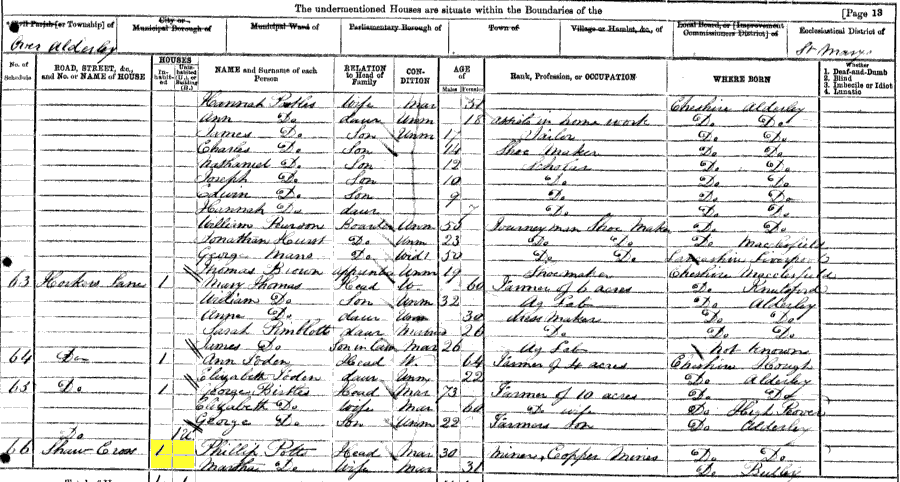 The undermentioned Houses are situate within the Boundaries of the [Page 13
Civil Parish [or Township] of City or Municipal Borough of Municipal Ward of Parliamentary Borough of Town of Village or Hamlet, &c., of Local Board, or [Improvement Commissioners District] of Ecclesiastical District of
Over Alderley St Marys
No. of Schedule ROAD, STREET, &c., and No. or NAME of HOUSE HOUSES Inhabited Uninhabited (U.), or Building (B.) NAME and Surname of each Person RELATION to Head of Family CONDITION AGE of Males Females Rank, Profession, or OCCUPATION WHERE BORN Whether 1. Deaf-and-Dumb 2. Blind 3. Imbecile or Idiot 4. Lunatic
Hannah Wife Mar 51 Cheshire Alderley
Ann Do daur Unm 18 assists in home work Do Do
James Do Son Unm 17 Tailor Do Do
Charles Do Son 14 Shoe Maker Do Do
Nathaniel Do Son 12 Scholar Do Do
Joseph Do Son 10 Do Do Do
Edwin Do Son 9 Do Do Do
Hannah Do daur 7 Do Do Do
William Boarder Unm 50 Journeyman Shoe Maker Do Do
Jonathan Hurst Do Unm 23 Do Do Do Macclesfield
George Do Wid 50 Do Do Lancashire Liverpool
Thomas Brown apprentice Unm 19 Shoemaker Cheshire Macclesfield
63 Hockers Lane 1 Mary Thomas Head W. 60 Farmer of 6 acres Do Knutsford
William Do Son Unm 32 Ag Lab Do Alderley
Anne Do daur Unm 30 dress maker Do Do
Sarah daur Married 26 Do Do Do
James Do Son in Law Mar 26 Ag Lab not known
64 Do 1 Ann Foden Head W. 64 Farmer of 4 acres Cheshire Hough
Elizabeth Foden daur Unm 22 Do Alderley
65 Do 1 George Head Mar 73 Farmer of 10 acres Do Do
Elizabeth Do Wife Mar 60 Do wife Do High
George Do Son Unm 22 Farmers Son Do Alderley
Do 1U
66 Shaw Cross 1 Phillip Potts Head Mar 30 miner, Copper Mines Do Do
Martha Do Wife Mar 31 Do